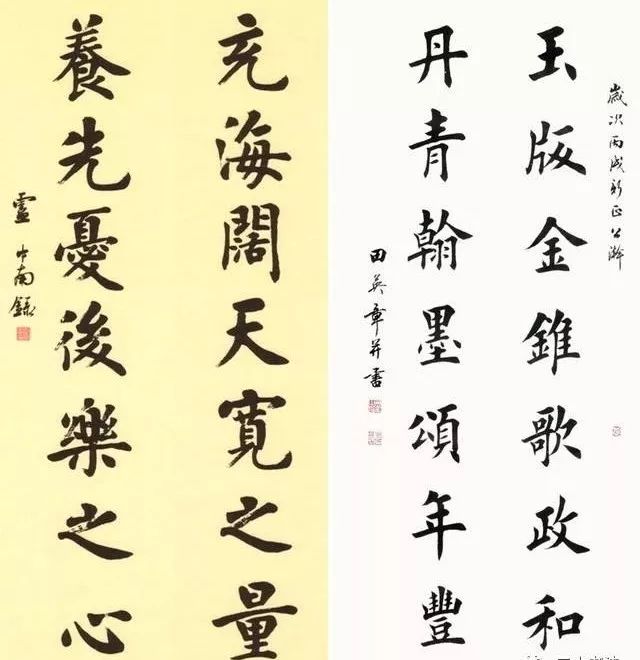 充海闊天寬之量
養先憂後樂之心
盧中南録
歲次丙戌新正
玉版金錐歌政和
丹青翰墨頌年豐
田英章并書